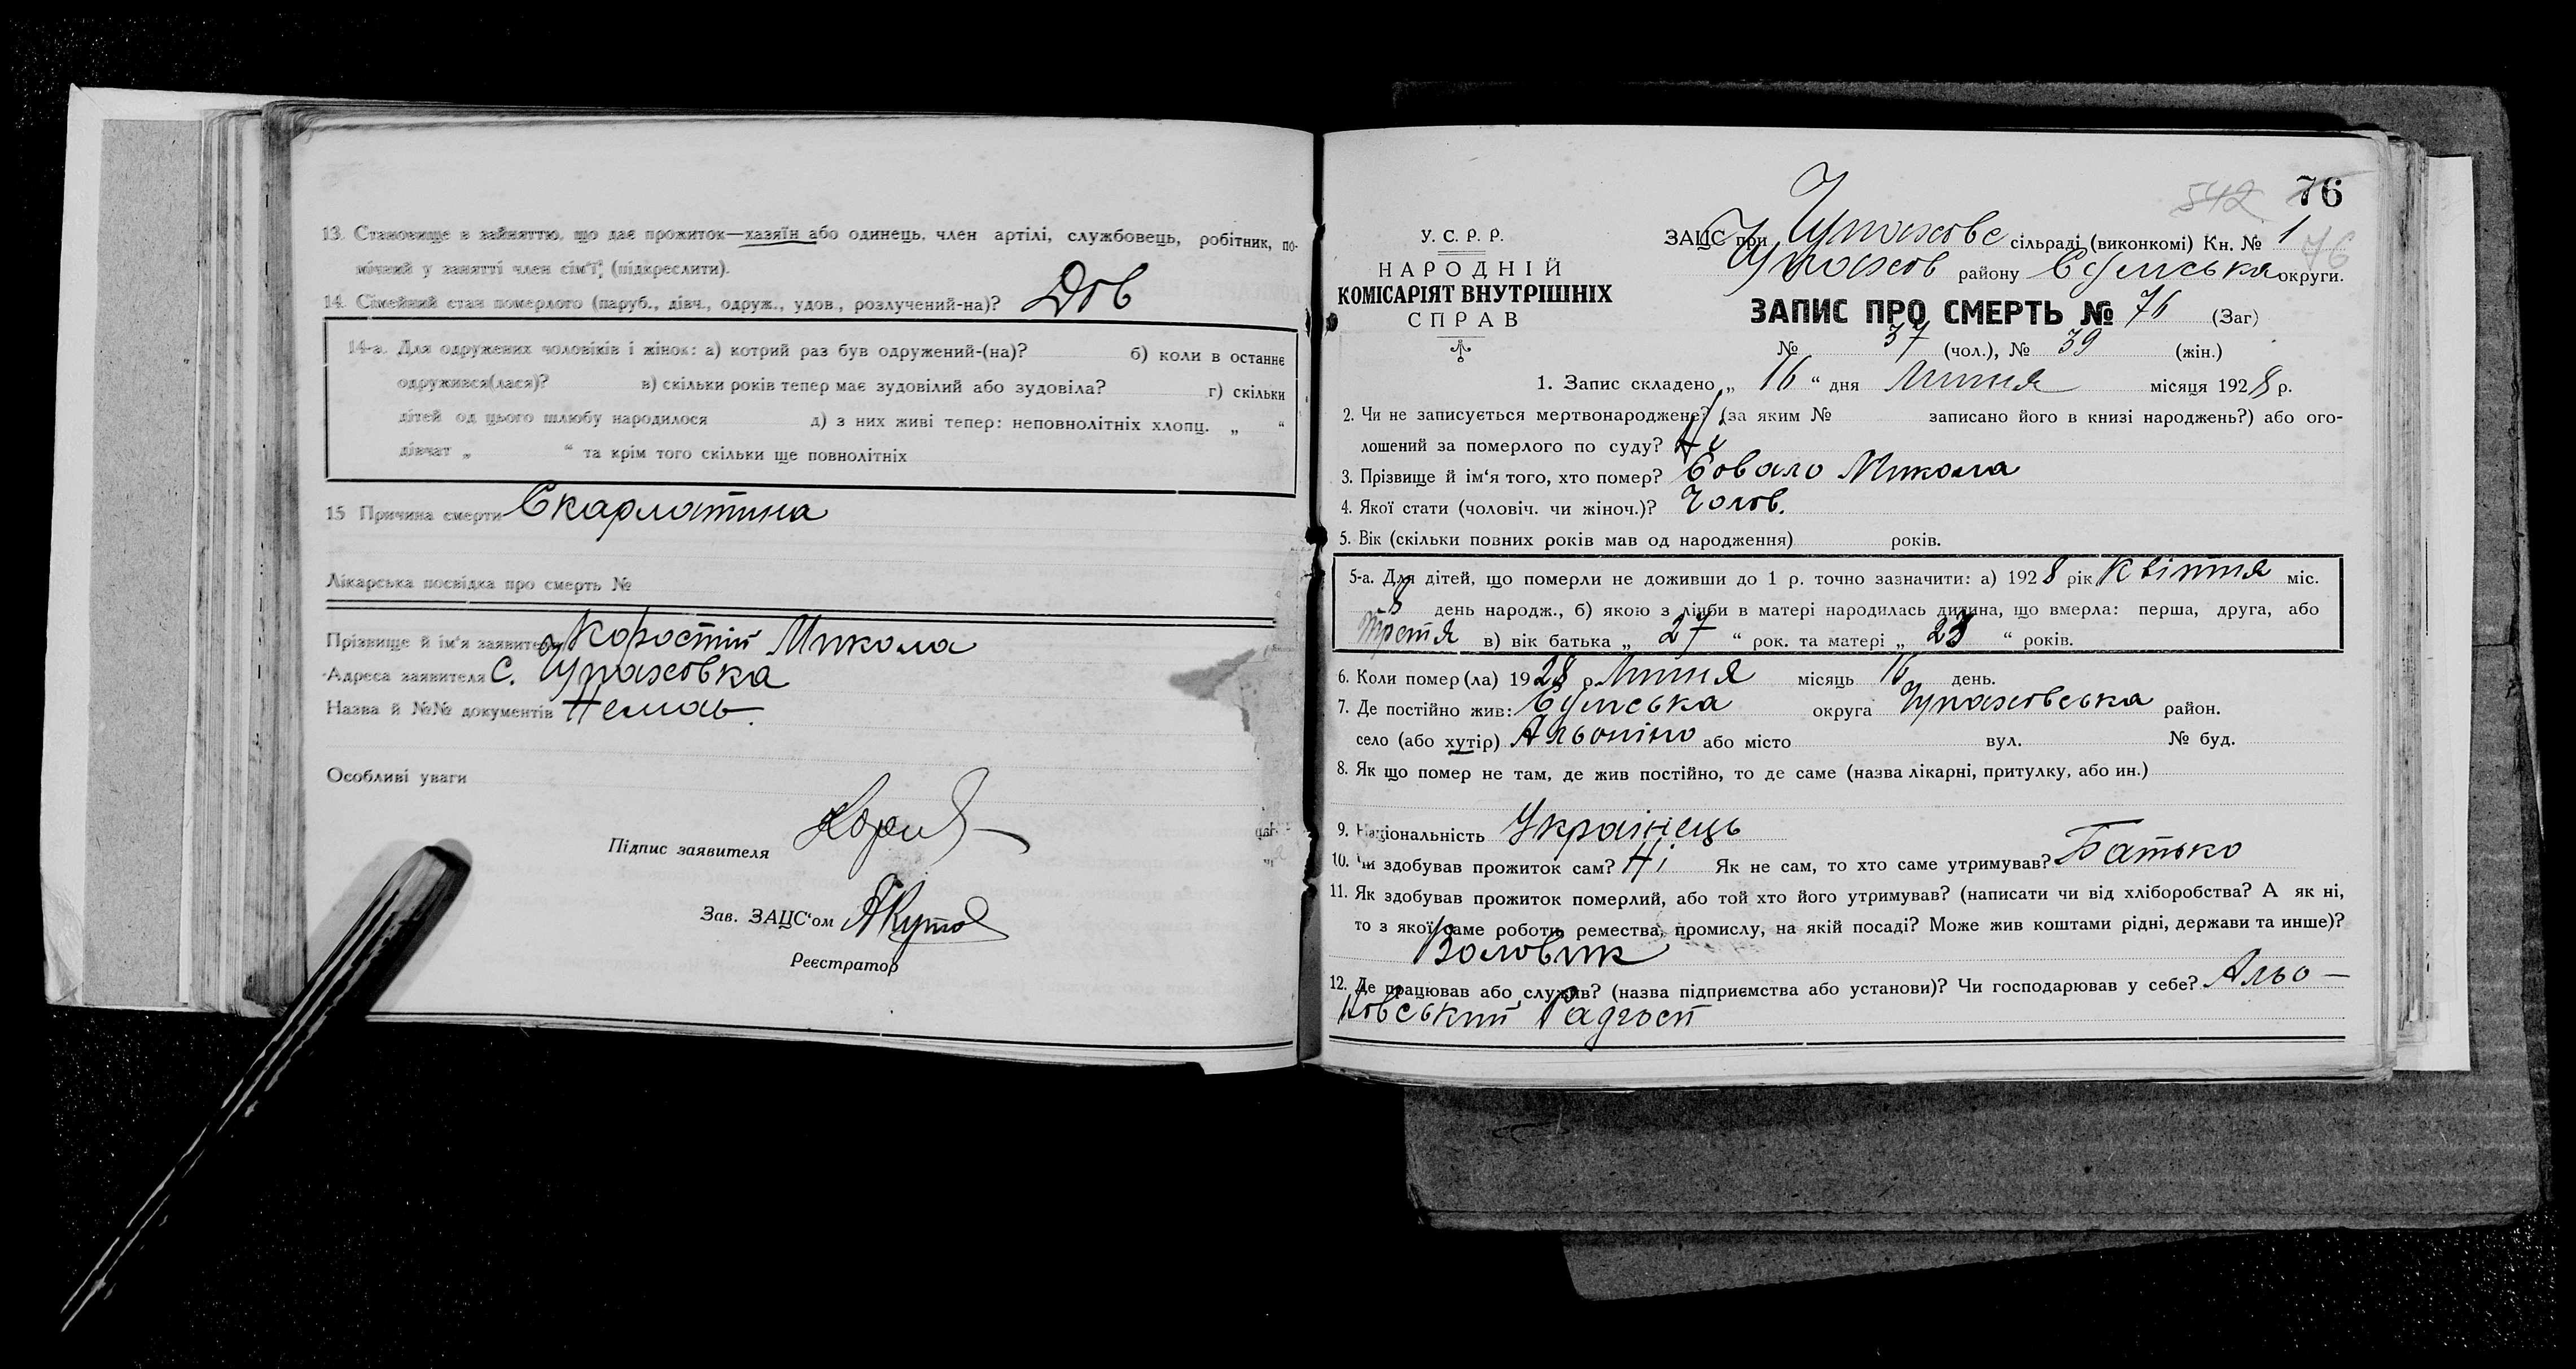 13. Становище в зайняттю, що дає прожиток—хазяїн або одинець, член артілі, службовець, робітник, по-
мічний у занятті член сім'ї, (підкреслити).
14. Сімейний стан померлого (паруб., дівч., одруж., удов., розлучений-на)?
14-а. Для одружених чоловіків і жінок: а) котрий раз був одружений-(на)? б) коли в останнє
одружився(лася)? в) скільки років тепер має зудовілий або зудовіла? г) скільки
дітей од цього шлюбу народилося д) з них живі тепер: неповнолітніх хлопц. „ “
дівчат „ “ та крім того скільки ще повнолітніх
15 Причина смерти Скарлатина
Лікарська посвідка про смерть №
Прізвище й ім'я заявителя Коростій Микола
Адреса заявителя С. Чупаховка
Назва й №№ документів Немає
Особливі уваги
Підпис заявителя
Зав. ЗАЦС'ом
Реєстратор
542 76
У. С. Р. Р.
НАРОДНІЙ
КОМІСАРІЯТ ВНУТРІШНІХ
СПРАВ
ЗАЦС при Чупахове сільраді (виконкомі) Кн. № 1
76
Чупахов району Сумська округи.
ЗАПИС ПРО СМЕРТЬ № 76 (Заг)
№ 37 (чол.), № 39 (жін.)
1. Запис складено „ 16 “ дня Липня місяця 1928 р.
2. Чи не записується мертвонароджене? (за яким № записано його в книзі народжень?) або ого-
лошений за померлого по суду? Ні
3. Прізвище й ім'я того, хто помер? Совало Микола
4. Якої стати (чоловіч. чи жіноч.)? Чолов.
5. Вік (скільки повних років мав од народження) років.
5-а. Для дітей, що померли не доживши до 1 р. точно зазначити: а) 1928 рік Квітня міс.
день народж., б) якою з лічби в матері народилась дитина, що вмерла: перша, друга, або
Третя в) вік батька „ 27 “ рок. та матері „ 23 “ років.
6. Коли помер(ла) 1928 р. Липня місяць 16 день.
7. Де постійно жив: Сумська округа Чупаховська район.
село (або хутір) Альошно або місто вул. № буд.
8. Як що помер не там, де жив постійно, то де саме (назва лікарні, притулку, або ин.)
9. Національність Українець
10. Чи здобував прожиток сам? Ні Як не сам, то хто саме утримував? Батько
11. Як здобував прожиток померлий, або той хто його утримував? (написати чи від хліборобства? А як ні,
то з якої саме роботи, ремества, промислу, на якій посаді? Може жив коштами рідні, держави та инше)?
Воловик
12. Де працював або служив? (назва підприємства або установи)? Чи господарював у себе? Альо-
новський Радгосп